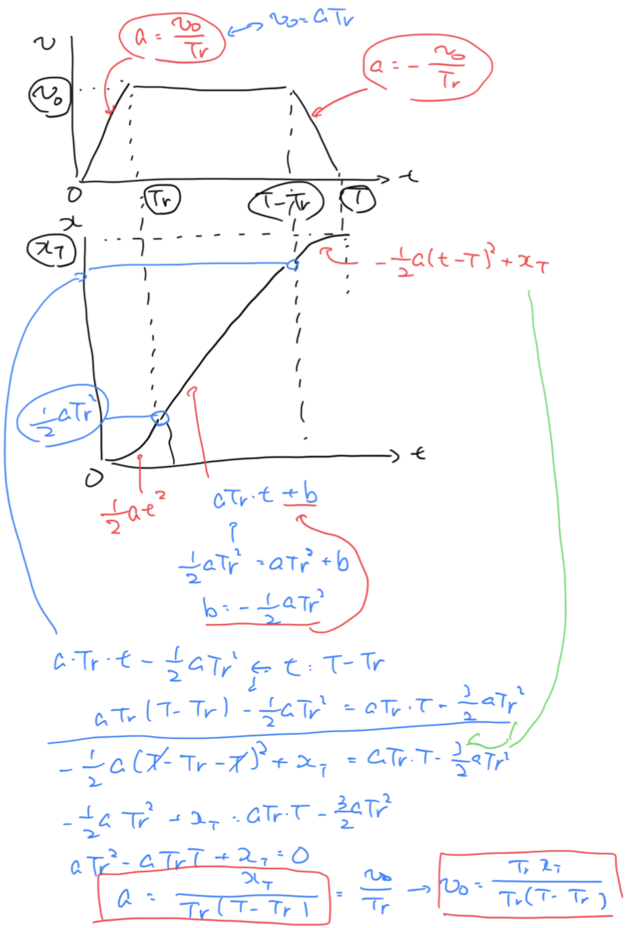 a = v₀/Tr
v₀ = aTr
v
a = - v₀/Tr
v₀
0
Tr
T-Tr
T
t
x
x_T
-½a(t-T)² + x_T
½aTr²
0
t
½at²
aTr·t + b
½aTr² = aTr² + b
b = -½aTr²
a·Tr·t - ½aTr² ← t : T-Tr
aTr(T-Tr) - ½aTr² = aTr·T - 3/2 aTr²
-½a(T-Tr-T)² + x_T = aTr·T - 3/2 aTr²
-½a Tr² + x_T = aTr·T - 3/2 aTr²
aTr² - aTrT + x_T = 0
a = x_T / Tr(T-Tr) = v₀/Tr → v₀ = Tr x_T / Tr(T-Tr)